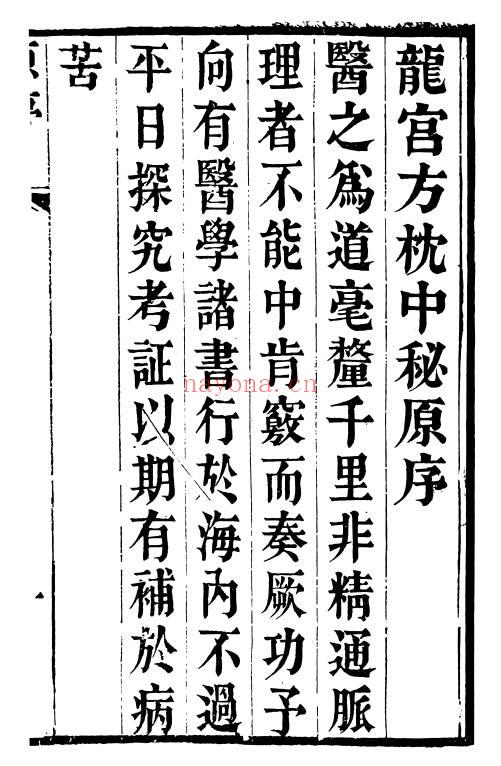 龍宮方枕中秘原序
醫之爲道毫釐千里非精通脈
理者不能中肯竅而奏厥功予
向有醫學諸書行於海內不過
平日探究考証以期有補於病
苦
nayona.cn